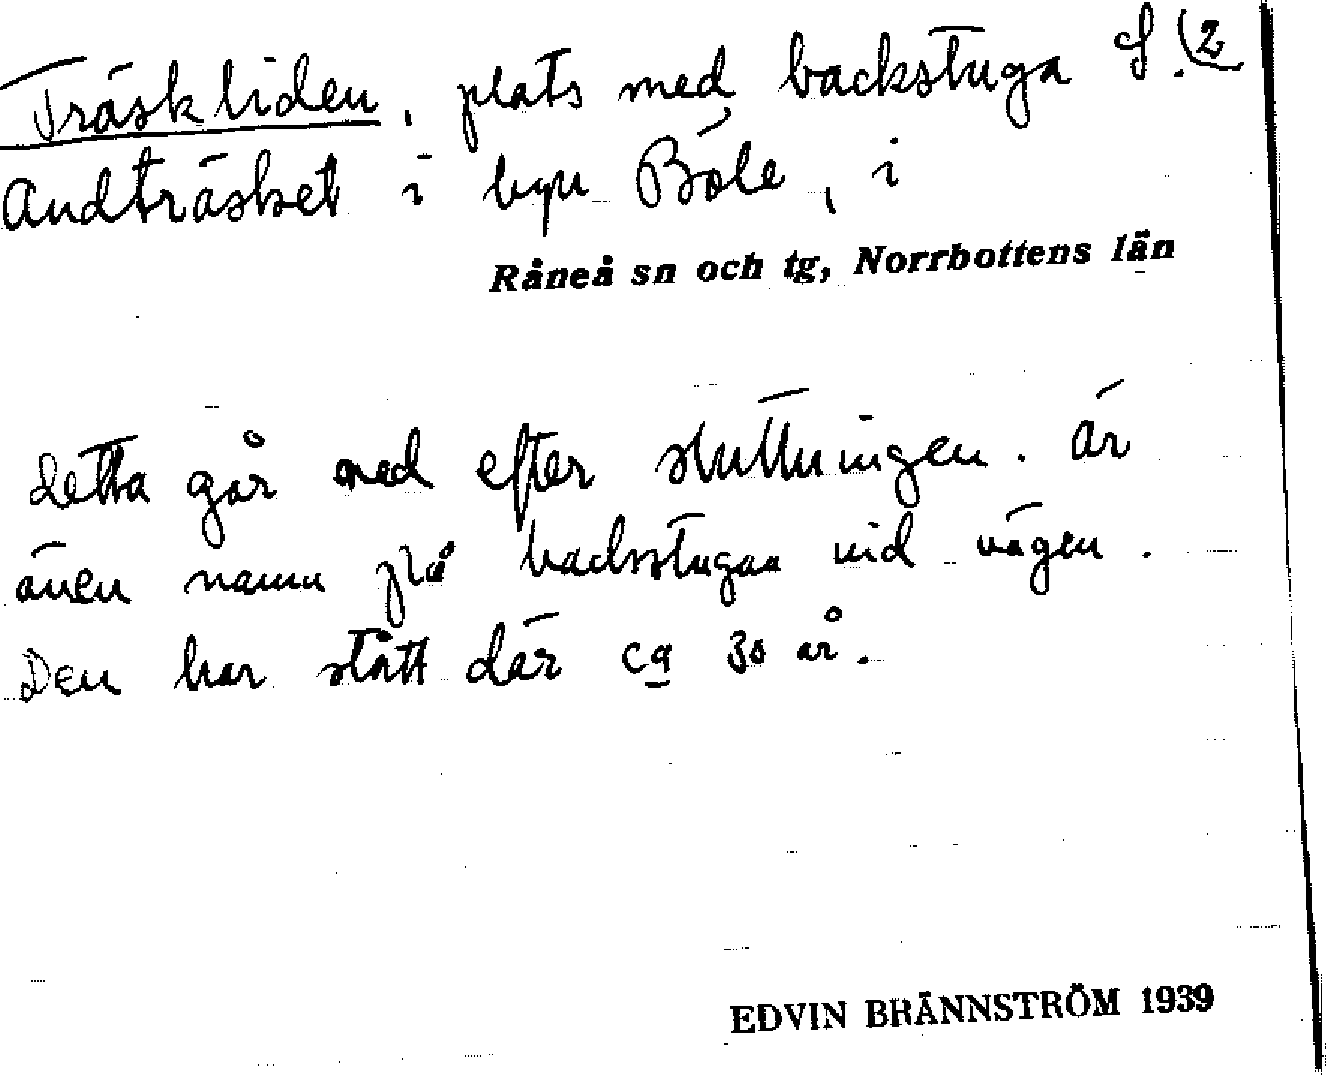 Träskliden, plats med backstuga S. (2
Andträsket i byn Böle, i
Råneå sn och tg, Norrbottens län
detta går ned efter sluttningen. är
även namn på backstugan vid vägen.
Den har stått där ca 30 år.
EDVIN BRÄNNSTRÖM 1939